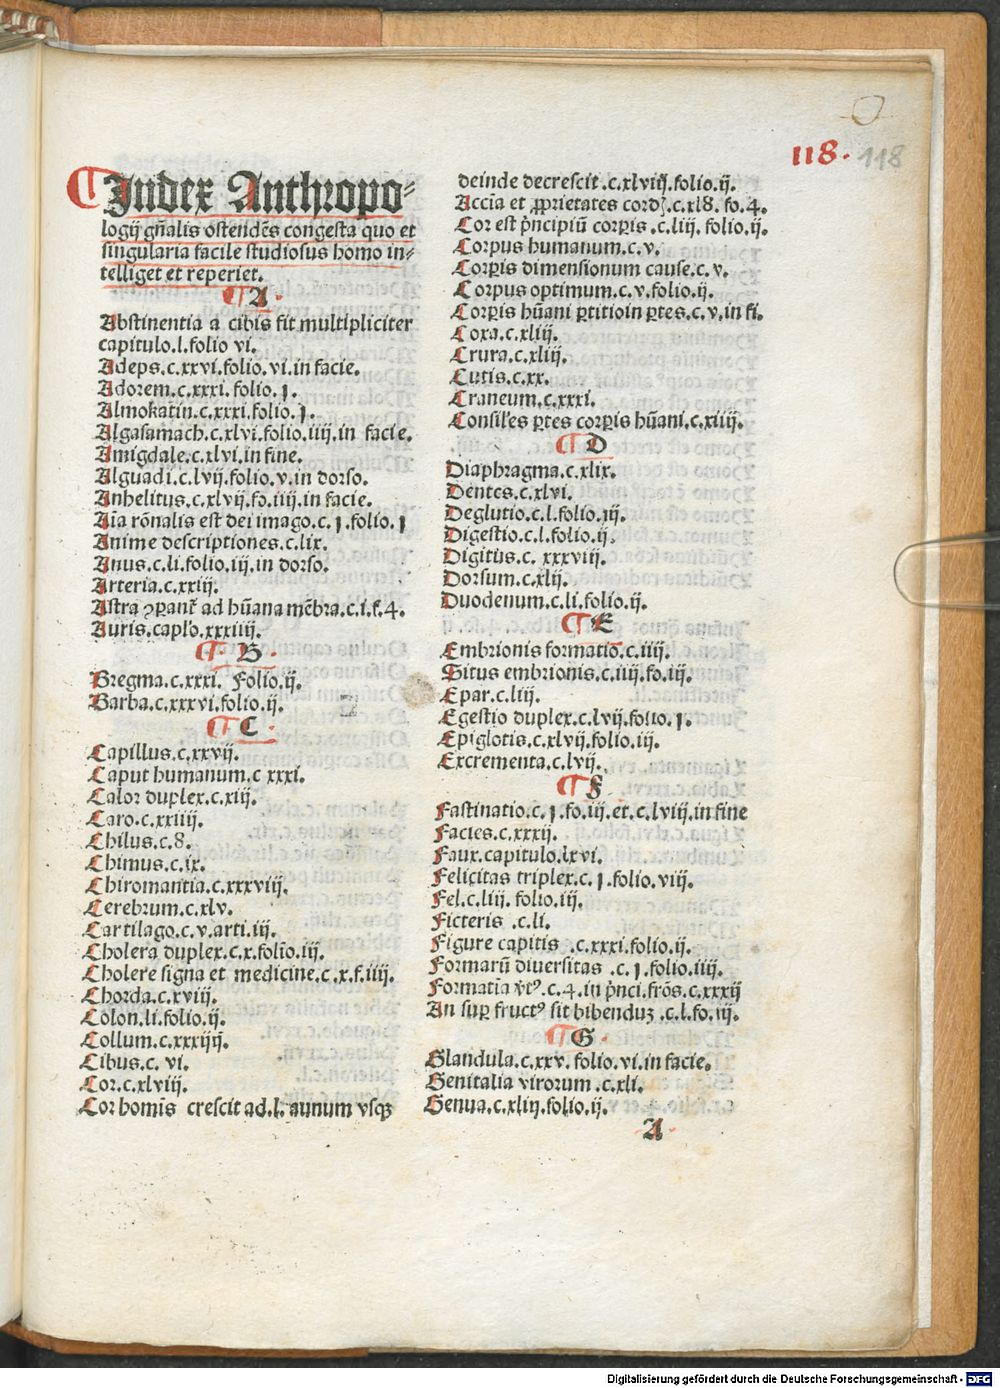 118. 118
¶ Index Anthropo⸗
logij gn̄alis ostendēs congesta quo et
singularia facile studiosus homo in⸗
telliget et reperiet.
¶ A.
Abstinentia a cibis fit multipliciter
capitulo.l.folio vi.
Adeps.c.xxvi.folio.vi.in facie.
Adorem.c.xxxi.folio.j.
Almokatin.c.xxxi.folio.j.
Algasamach.c.xlvi.folio.iiij.in facie.
Amigdale.c.xlvi.in fine.
Alguadi.c.lvij.folio.v.in dorso.
Anhelitus.c.xlvij.fo.iiij.in facie.
Aīa rōnalis est dei imago.c.j.folio.j
Anime descriptiones.c.lix.
Anus.c.li.folio.iij.in dorso.
Arteria.c.xxiij.
Astra ad hūana mēbra.c.i.f.4.
Auris.capl'o.xxxiiij.
¶ B.
Bregma.c.xxxi. Folio.ij.
Barba.c.xxxvi.folio.ij.
¶ C.
Capillus.c.xxvij.
Caput humanum.c xxxi.
Calor duplex.c.xij.
Caro.c.xxiiij.
Chilus.c.8.
Chimus.c.ix.
Chiromantia.c.xxxviij.
Cerebrum.c.xlv.
Cartilago.c.v.arti.iij.
Cholera duplex.c.x.folio.iij.
Cholere signa et medicine.c.x.f.iiij.
Chorda.c.xviij.
Colon.li.folio.ij.
Collum.c.xxxiij.
Cibus.c. vi.
Cor.c.xlviij.
Cor homīs crescit ad.l.annum vsqꝫ
deinde decrescit.c.xlviij.folio.ij.
Accīa et ꝓprietates cordꝭ.c.xl8. fo.4.
Cor est p̄ncipiū corꝑis.c.liij. folio.ij.
Corpus humanum.c.v.
Corꝑis dimensionum cause.c.v.
Corpus optimum.c.v.folio.ij.
Corꝑis hūani ꝑtitioin ꝑtes.c.v.in fi.
Coxa.c.xliij.
Crura.c.xliij.
Cutis.c.xx.
Craneum.c.xxxi.
Consil'es ꝑtes corꝑis hūani.c.xiiij.
¶ D
Diaphragma.c.xlix.
Dentes.c.xlvi.
Deglutio.c.l.folio.ij.
Digestio.c.l.folio.ij.
Digitus.c. xxxviij.
Dorsum.c.xlij.
Duodenum.c.li.folio.ij.
¶ E
Embrionis formatio.c.iiij.
Situs embrionis.c.iiij.fo.iij.
Epar.c.liij.
Egestio duplex.c.lvij.folio.j.
Epiglotis.c.xlvij.folio.iij.
Excrementa.c.lvij.
¶ F
Fastinatio.c.j.fo.iij.et.c.lviij.in fine
Facies.c.xxxij.
Faux.capitulo.lxvi.
Felicitas triplex.c.j.folio.viij.
Fel.c.liij. folio.iij.
Ficteris .c.li.
Figure capitis .c.xxxi.folio.ij.
Formarū diuersitas .c.j.folio.iiij.
Formatia .c.4.in p̄nci.frōs.c.xxxij
An suꝑ fructꝰ sit bibenduꝫ .c.l.fo.iij.
¶ G.
Glandula.c.xxv. folio.vi.in facie.
Genitalia virorum .c.xli.
Genua.c.xliij.folio.ij.
A
Digitalisierung gefördert durch die Deutsche Forschungsgemeinschaft - DFG